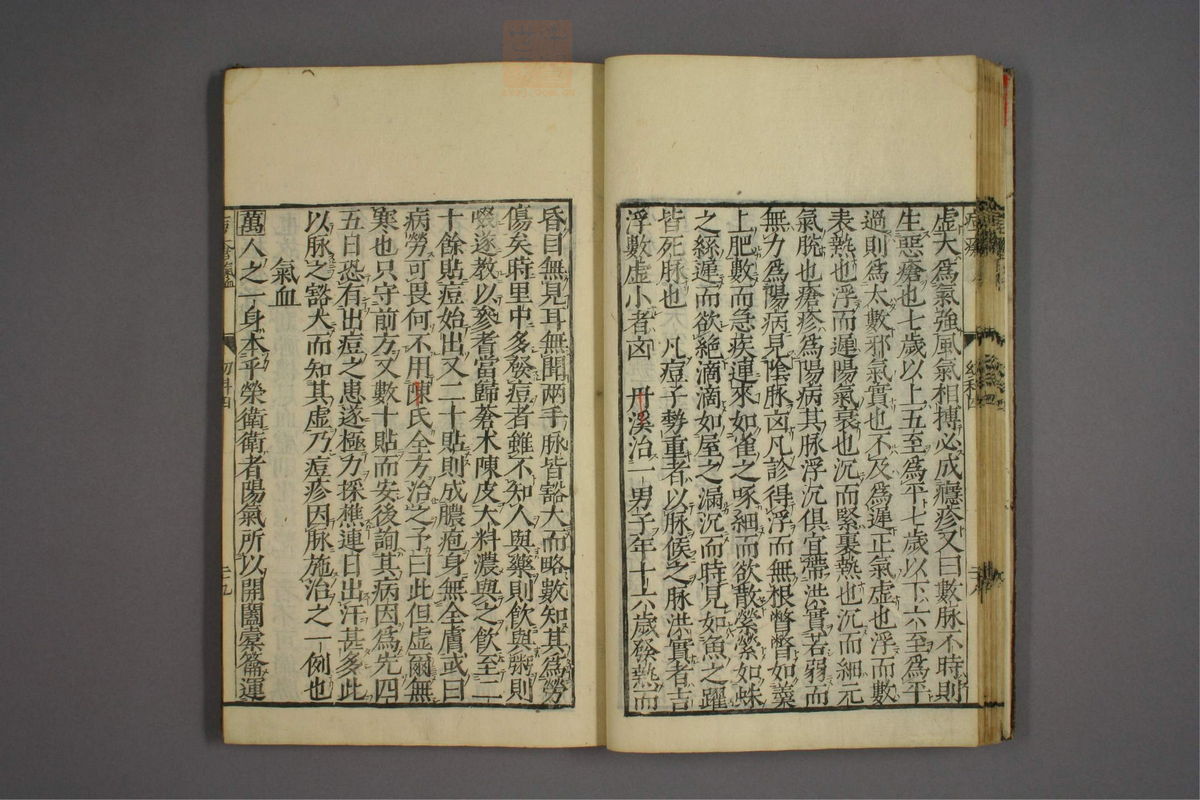 虛大爲氣強風氣相搏必成癮疹又曰數脉不時則
生惡瘡也七歲以上五至爲平七歲以下六至爲平
過則爲太數邪氣實也不及爲遲正氣虛也浮而數
表熱也浮而遲陽氣衰也沉而緊裏熱也沉而細元
氣脫也瘡疹爲陽病其脉浮沉俱宜帶洪實若弱而
無力爲陽病見陰脉凶凡診得浮而無根瞥瞥如羮
上肥數而急疾連來如雀之啄細而欲散縈縈如蛛
之絲遲而欲絶滴滴如屋之漏沉而時見如魚之躍
皆死脉也 凡痘子勢重者以脉候之脉洪實者吉
浮數虛小者凶 丹溪治一男子年十六歲發熱而
昏目無見耳無聞兩手脉皆豁大而略數知其爲勞
傷矣時里中多發痘者雖不知人與藥則飮與粥則
啜遂教以參耆當歸蒼朮陳皮大料濃與之飮至二
十餘貼痘始出又二十貼則成膿疱身無全膚或曰
病勞可畏何不用陳氏全方治之予曰此但虛爾無
寒也只守前方又數十貼而安後詢其病因爲先四
五日恐有出痘之患遂極力採樵連日出汗甚多此
以脉之豁大而知其虛乃痘疹因脉施治之一例也
氣血
萬人之一身本乎榮衛衛者陽氣所以開闔橐籥運